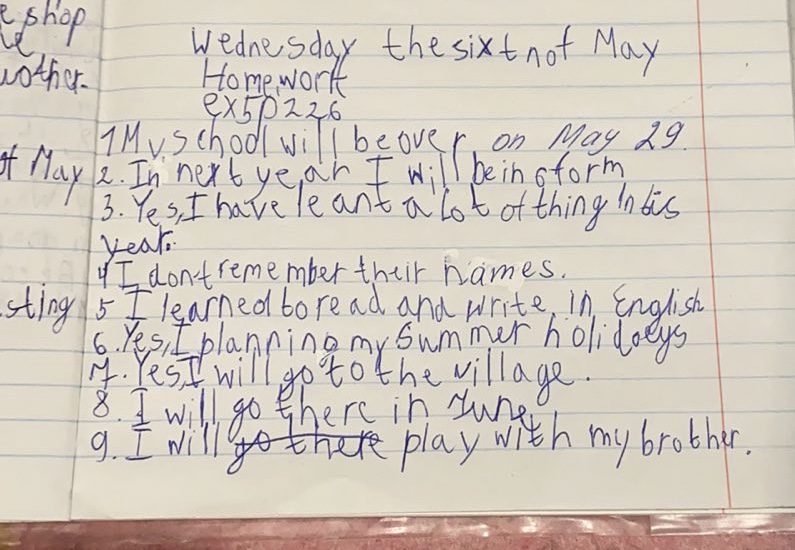 e shop
Wednesday the sixtnof May
Homework
wother.
ex5p226
1 My school will be over on May 29.
of May
2. In next year I will be in 6 form
3. Yes, I have leant a lot of thing In tis
year.
4 I dont remember their names.
sting
5 I learned to read and write in English
6. Yes, I planning my Summer holidaeys
7. Yes, I will go to the village.
8. I will go there in June
9. I will go there play with my brother.